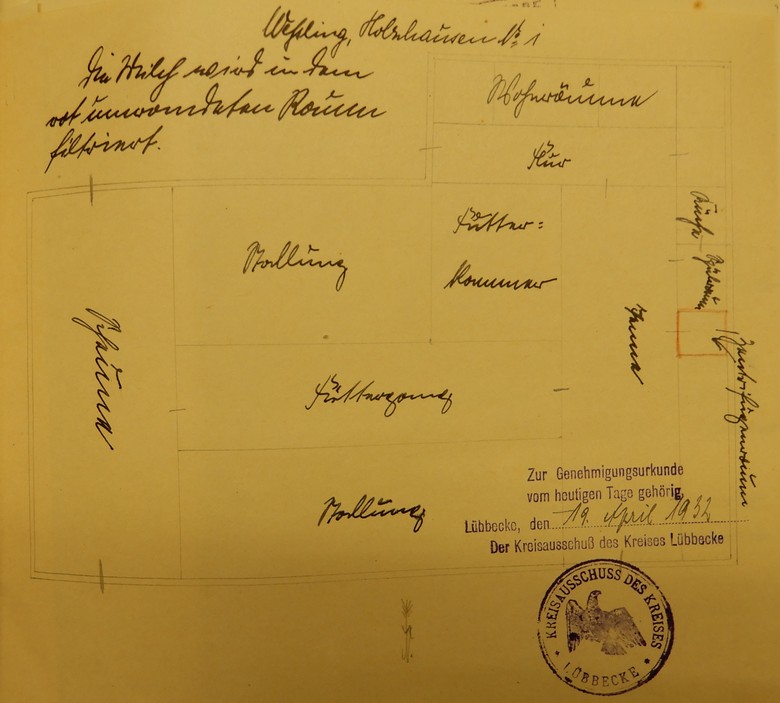 Wehling, Holzhausen No 1
Die Milch wird in dem
rot umrandeten Raum
filtriert.
Wohnräume
Flur
Stallung
Futter=
kammer
Küche
Spülraum
Tenne
Zentrifugenraum
Scheune
Futtergang
Stallung
Zur Genehmigungsurkunde
vom heutigen Tage gehörig.
Lübbecke, den 19. April 1932
Der Kreisausschuß des Kreises Lübbecke
KREISAUSSCHUSS DES KREISES
LÜBBECKE